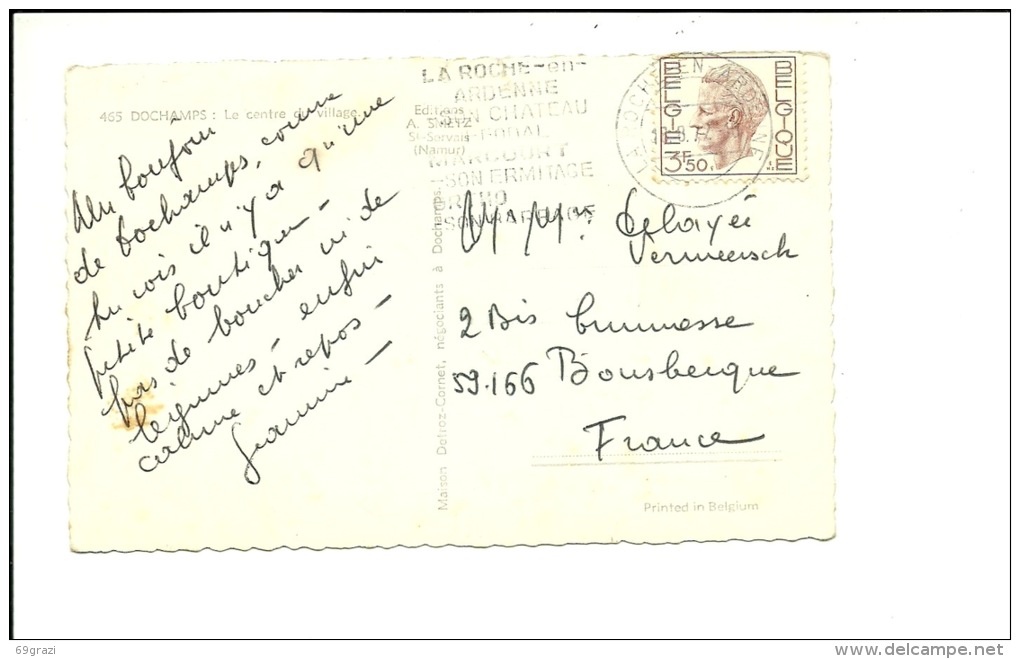 465 DOCHAMPS : Le centre du village.
Editions
A. SMETZ
St-Servais
(Namur)
Un bonjour
de Dochamps, comme
tu vois il n'y a qu'une
petite boutique -
pas de boucher ni de
légumes - enfin
calme et repos -
Jeannine -
Maison Detroz-Cornet, négociants à Dochamps.
LA ROCHE-en-
ARDENNE
SON CHATEAU
FEODAL
MARCOURT
SON ERMITAGE
ORTHO
SON BARRAGE
LA ROCHE-EN-ARDENNE
BELGIE
BELGIQUE
3F50
Vermeersch
2 Bis
59.166 Bousbecque
France
Printed in Belgium
69grazi
www.delcampe.net